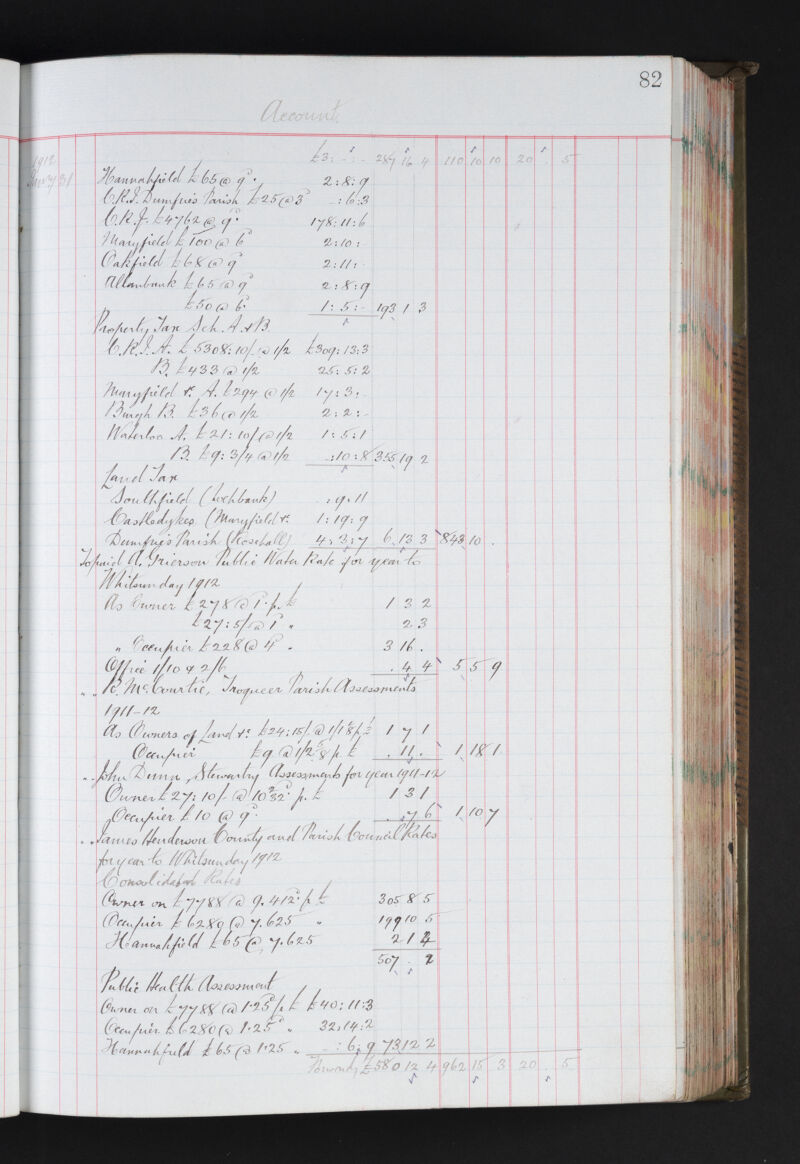 82
Account
1912
Jany 31
£3: - : - 287 16 4 110 10 10 20 . 5
Hannahfield £65 @ 9d. 2:8:9
C.R.I. Dumfries Parish £25 @ 3 -:6:3
C.R.I. £4762 @ 9d. 178:11:6
Maryfield £100 @ 6d 2:10:-
Oakfield £68 @ 9d 2:11:-
Allanbank £65 @ 9d 2:8:9
£50 @ 6d. 1:5:- 193 1 3
Property Tax Sch. A. & B.
C.R.I. A. £5308:10/- @ 1/2 £309:13:3
B. £433 @ 1/2 25:5:2
Maryfield &c. A. £294 @ 1/2 17:3:-
Burgh B. £36 @ 1/2 2:2:-
Waterloo A. £21:10/- @ 1/2 1:5:1
B. £9:3/4 @ 1/2 -:10:8 355 19 2
Land Tax
Southfield (Lochbank) :9:11
Castledykes (Maryfield &c. 1:19:9
Dumfries Parish (Rosehall) 4:3:7 6 13 3 843 10 .
To paid A. Grierson Public Water Rate for year to
Whitsunday 1912
As Owner £278 @ 1d. p. £ 1 3 2
£27:5/- @ 1d " 2 3
" Occupier £228 @ 4d " 3 16 .
Office 1/10 & 2/6 . 4 4 5 5 9
" " R. McCourtie, Troqueer Parish Assessments
1911-12
As Owners of Land &c. £24:15/- @ 1/1 1/8 p. £ 1 7 1
Occupier £9 @ 1/2 5/8 p. £ . 11 . 1 18 1
" " John Dunn, Stewartry Assessments for year 1911-12
Owner £27:10/- @ 10 2/32d. p. £ 1 3 1
Occupier £10 @ 9d. . 7 6 1 10 7
" " James Henderson County and Parish Council Rates
for year to Whitsunday 1912
Consolidated Rates
Owner on £7788 @ 9.412d. p. £ 305 8 5
Occupier £6280 @ 7.625 " 199 10 5
Hannahfield £65 @ 7.625 2 1 4
507 . 2
Public Health Assessment
Owner on £7788 @ 1.25d p. £ £40:11:3
Occupier £6280 @ 1.25d " 32:14:2
Hannahfield £65 @ 1.25 " -:6:9 73 12 2
Forward £580 12 4 962 15 3 20 . 5